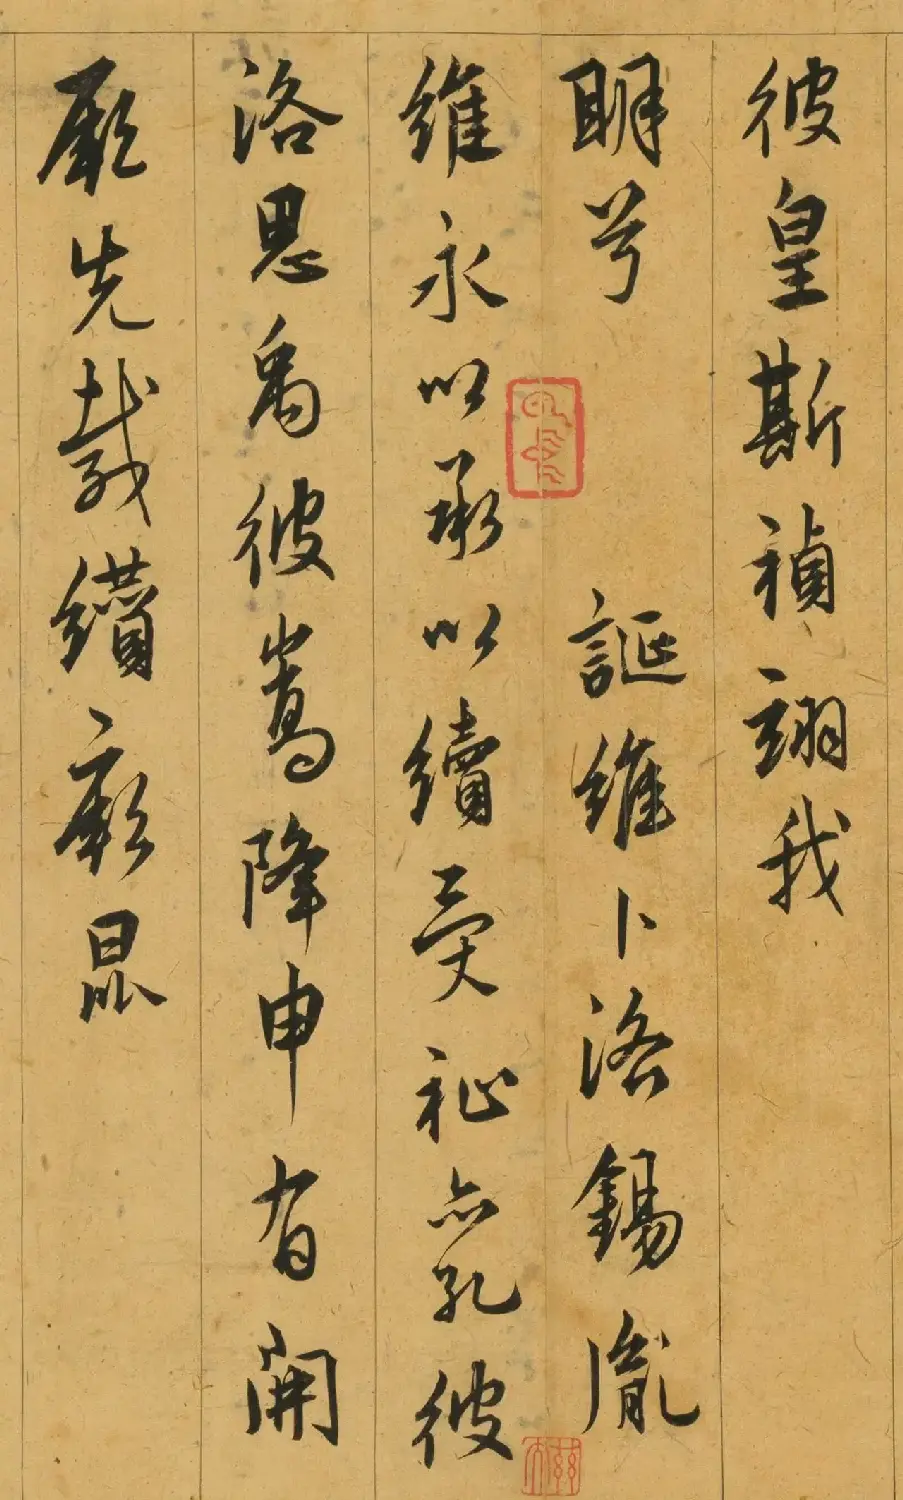 彼皇斯禎翊我
明兮 誕維卜洛錫胤
維永以承以續受祉亦孔彼
洛思禹彼嵩降申有開
厥先哉纘厥昆